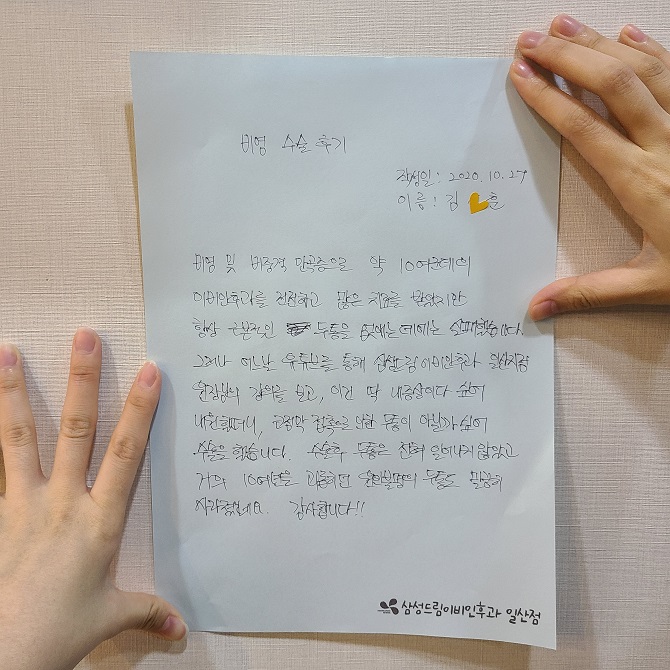 비염 수술 후기
작성일 : 2020. 10. 27
이름 : 김 훈
비염 및 비중격 만곡증으로 약 10여군데의
이비인후과를 전전하고 많은 치료를 받았지만
항상 근본적인 두통을 없애는데에는 실패했습니다.
그러나 어느날 유튜브를 통해 삼성드림이비인후과 일산지점
원장님의 강의를 보고, 이건 딱 내증상이다 싶어
내원했더니, 점막 접촉으로 인한 두통이 아닐까 싶어
수술을 했습니다. 수술후 두통은 전혀 일어나지 않았고
거의 10여년을 괴롭히던 두통도 말끔히
사라졌네요. 감사합니다!!
삼성드림이비인후과 일산점